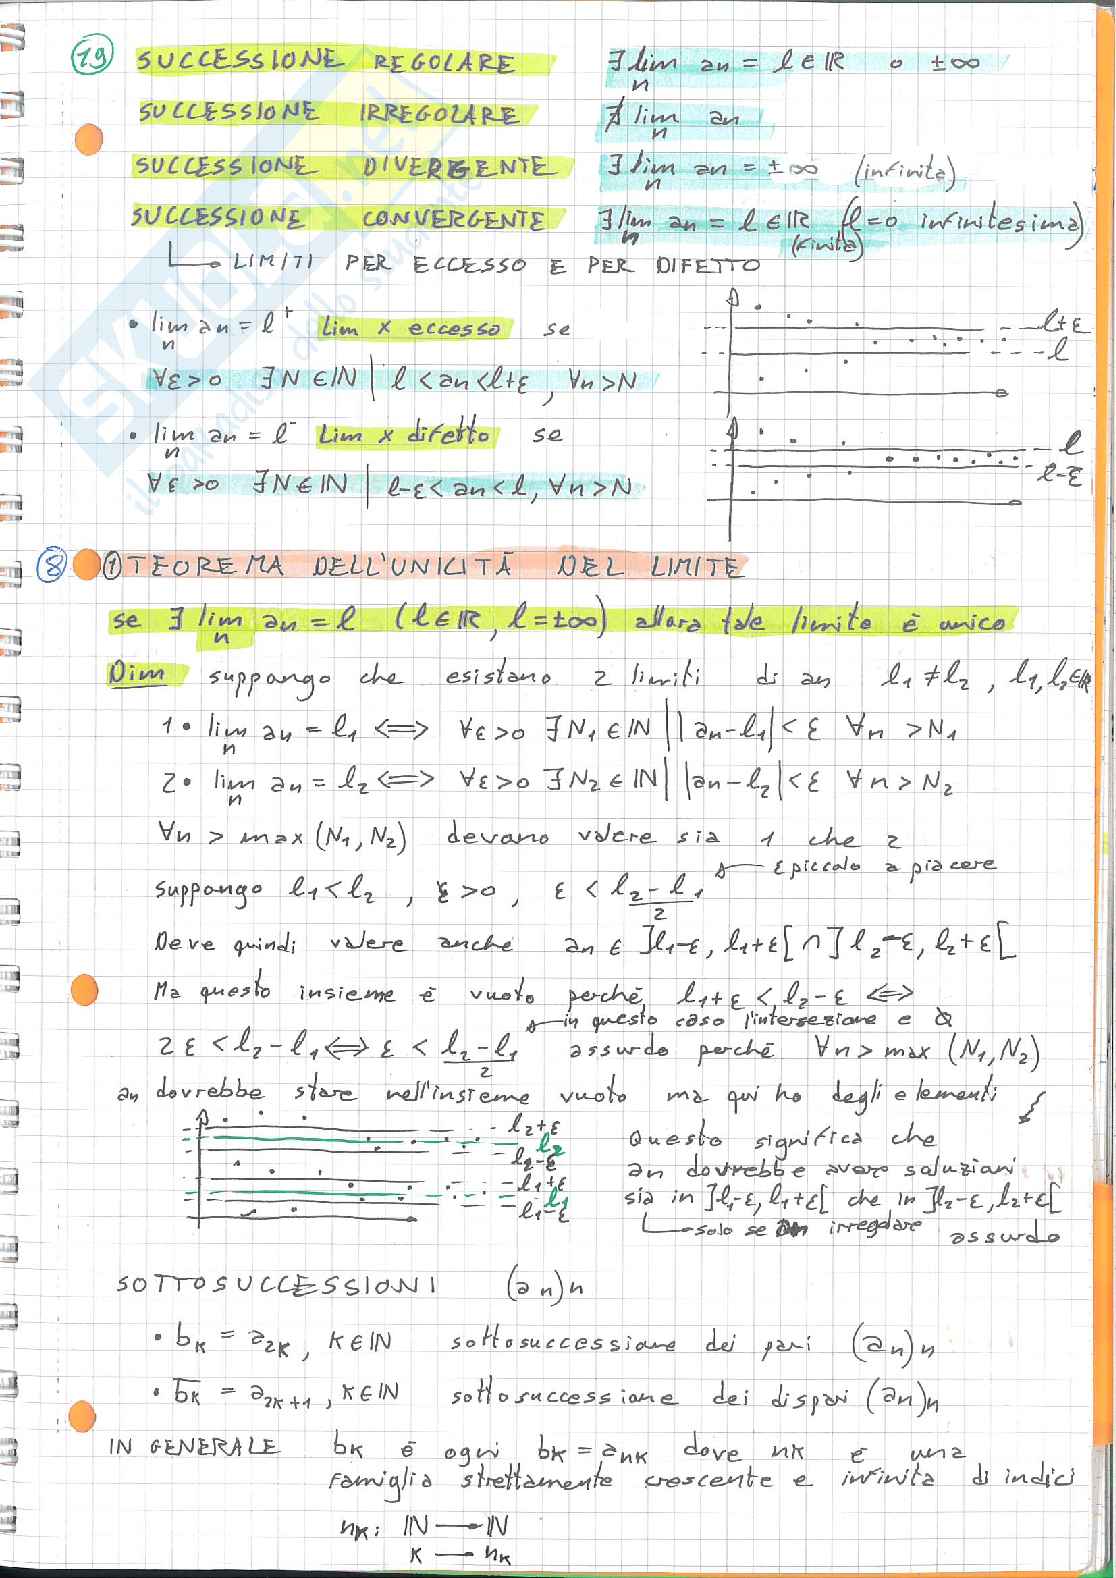 19 SUCCESSIONE REGOLARE ∃ lim an = l ∈ ℝ o ±∞
n
SUCCESSIONE IRREGOLARE ∄ lim an
n
SUCCESSIONE DIVERGENTE ∃ lim an = ±∞ (infinita)
n
SUCCESSIONE CONVERGENTE ∃ lim an = l ∈ ℝ (l=0 infinitesima)
n (finita)
LIMITI PER ECCESSO E PER DIFETTO
• lim an = l⁺ Lim x eccesso se
n
∀ε>0 ∃N∈ℕ | l<an<l+ε, ∀n>N
l+ε
l
• lim an = l⁻ Lim x difetto se
n
∀ε>0 ∃N∈ℕ | l-ε<an<l, ∀n>N
l
l-ε
8 1 TEOREMA DELL'UNICITÀ DEL LIMITE
se ∃ lim an = l (l∈ℝ, l=±∞) allora tale limite è unico
n
Dim suppongo che esistano 2 limiti di an l1≠l2, l1,l2∈ℝ
1• lim an = l1 <=> ∀ε>0 ∃N1∈ℕ | |an-l1|<ε ∀n >N1
n
2• lim an = l2 <=> ∀ε>0 ∃N2∈ℕ | |an-l2|<ε ∀n>N2
n
∀n > max (N1, N2) devono valere sia 1 che 2
ε piccolo a piacere
suppongo l1<l2, ε>0, ε < l2-l1
2
Deve quindi valere anche an ∈ ]l1-ε, l1+ε[ ∩ ]l2-ε, l2+ε[
Ma questo insieme è vuoto perché l1+ε < l2-ε <=>
in questo caso l'intersezione e ∅
2ε < l2-l1 <=> ε < l2-l1 assurdo perché ∀n>max (N1, N2)
2
an dovrebbe stare nell'insieme vuoto ma qui ho degli elementi
l2+ε
l2
l2-ε
l1+ε
l1
l1-ε
Questo significa che
an dovrebbe avere soluzioni
sia in ]l1-ε, l1+ε[ che in ]l2-ε, l2+ε[
solo se an irregolare assurdo
SOTTOSUCCESSIONI (an)n
• bk = a2k, k∈ℕ sottosuccessione dei pari (an)n
• b̅k = a2k+1, k∈ℕ sottosuccessione dei dispari (an)n
IN GENERALE bk è ogni bk = ank dove nk è una
famiglia strettamente crescente e infinita di indici
nk: ℕ → ℕ
k → nk